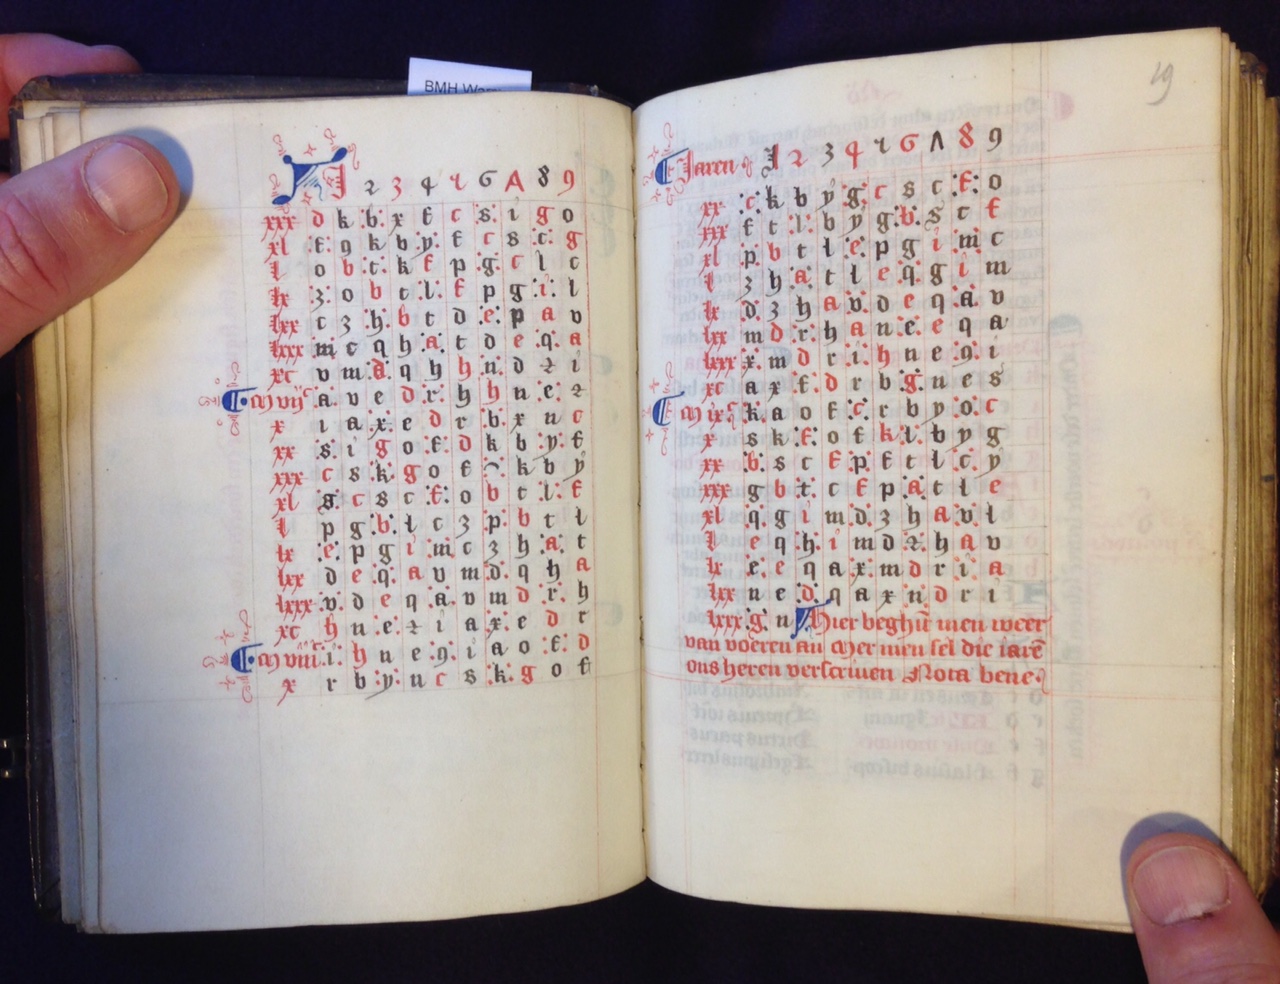 BMH
1 2 3 4 5 6 7 8 9
xxx d k b x f c s i g o
xl f 9 k b y f c s c g
l o b t k f p g c l c
lx 3 o b t l f p g i l
lxx c 3 h b t d e p a v
lxxx m c q h a t d e q a
xc v m a q h h n d 2 i
M vijc a v e d r h h n e 2
x i a x e d r b x n c
xx s i g o f d k b y f
xxx c s k g o f k b y
xl g c s c f o b t l f
l p g b l c 3 p b t l
lx e p g i m c 3 h a t
lxx d e q a v m d q h a
lxxx v d e q a v m d r h
xc h n e 2 i a x e d r
M viiic i h n e 9 i a o f d
x r b y n c s k g o f
19
Jaren 1 2 3 4 5 6 7 8 9
xx c k b y g c s c f o
xxx f t l b y g b s c f
xl p b t l e p g i m c
l 3 h a t l e q g i m
lx d 3 h a v d e q a v
lxx m d r h a n e e q a
lxxx x m d r i h n e 9 i
xc a x f d r b g n e s
M ixc k a o f c r b y o c
x s k f o f k l b y g
xx b s c f p f t l c y
xxx g b t c f p a t l e
xl q g i m d 3 h a v l
l e q h i m d 2 h a v
lx e e q a x m d r i a
lxx n e d q a x n d r i
lxxx g n Hier beghint men weer
van voeren an Mer men sel die iarē
ons heren verscriuen Nota bene